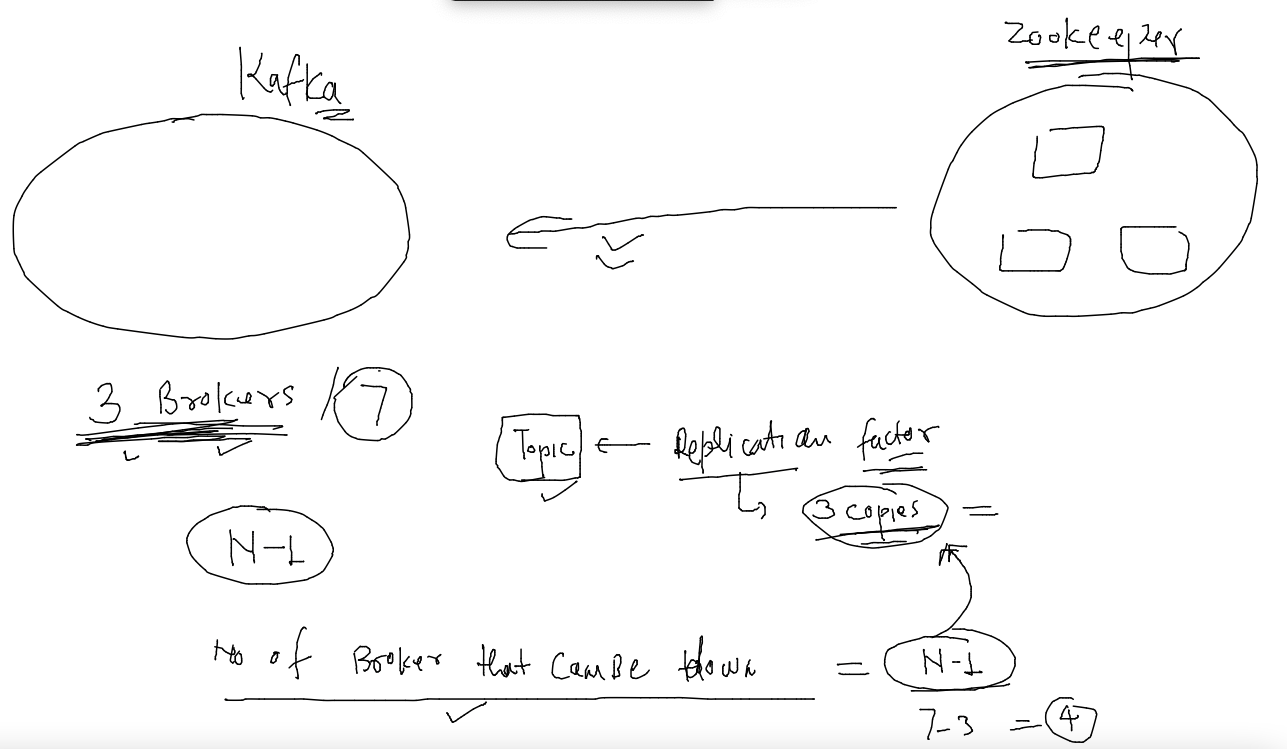 Zookeeper
Kafka
3 Brokers / 7
Topic ← Replication factor
↳ 3 copies =
N-1
No of Broker that can be down = N-1
7-3 = 4